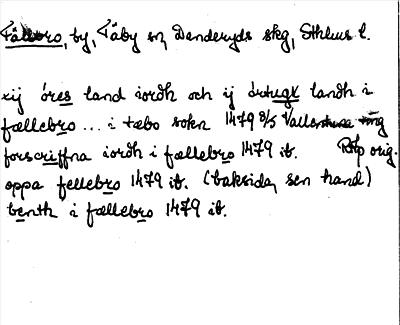 Fällbro, by, Täby sn, Danderyds skg, Sthlms l.
xij öres land iordh och ij örtugx landh i
fællebro ... i tæbo sokn 1479 8/5 Vallentuna ting
forscriffna iordh i fællebro 1479 ib. RAp orig.
oppa fellebro 1479 ib. (baksida, sen hand)
benth i fællebro 1479 ib.